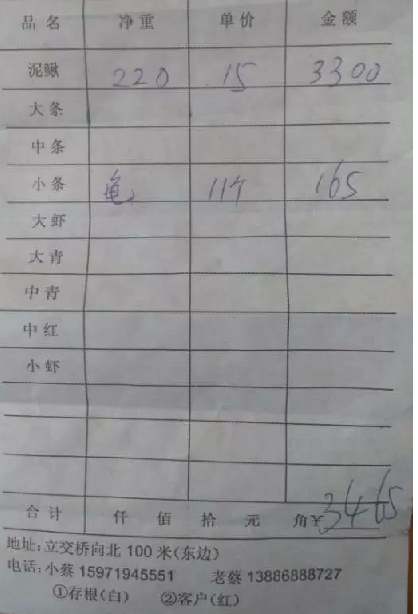 品名 净重 单价 金额
泥鳅 220 15 3300
大条
中条
小条 龟 11个 165
大虾
大青
中青
中红
小虾
合计 仟 佰 拾 元 角¥3465
地址:立交桥向北100米(东边)
电话:小蔡 15971945551 老蔡 13886888727
①存根(白) ②客户(红)